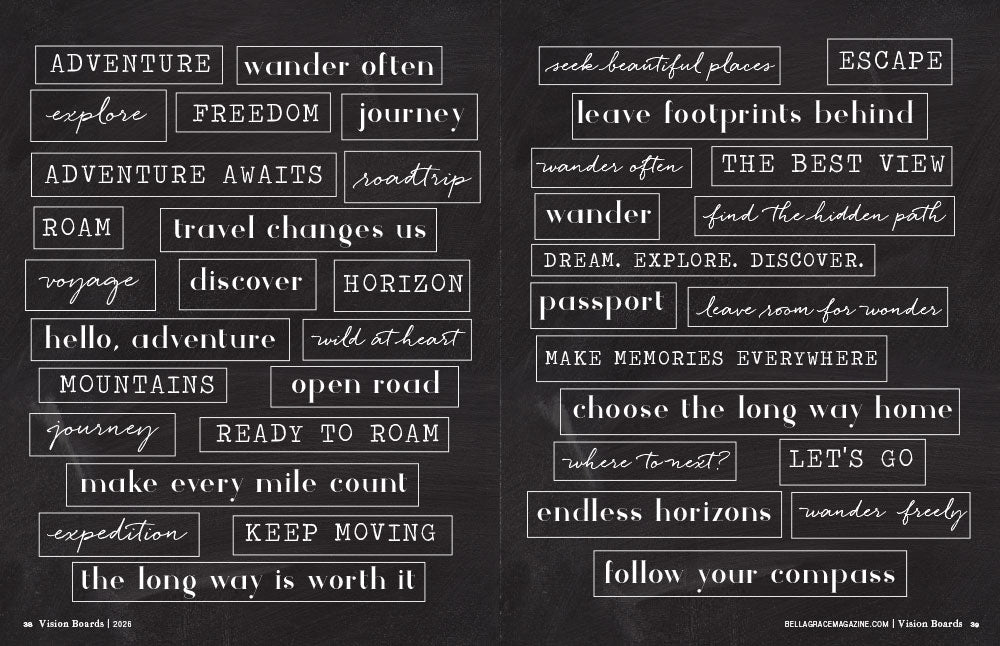 ADVENTURE
wander often
explore
FREEDOM
journey
ADVENTURE AWAITS
roadtrip
ROAM
travel changes us
voyage
discover
HORIZON
hello, adventure
wild at heart
MOUNTAINS
open road
journey
READY TO ROAM
make every mile count
expedition
KEEP MOVING
the long way is worth it
38 Vision Boards | 2026
seek beautiful places
ESCAPE
leave footprints behind
wander often
THE BEST VIEW
wander
find the hidden path
DREAM. EXPLORE. DISCOVER.
passport
leave room for wonder
MAKE MEMORIES EVERYWHERE
choose the long way home
where to next?
LET'S GO
endless horizons
wander freely
follow your compass
BELLAGRACEMAGAZINE.COM | Vision Boards 39